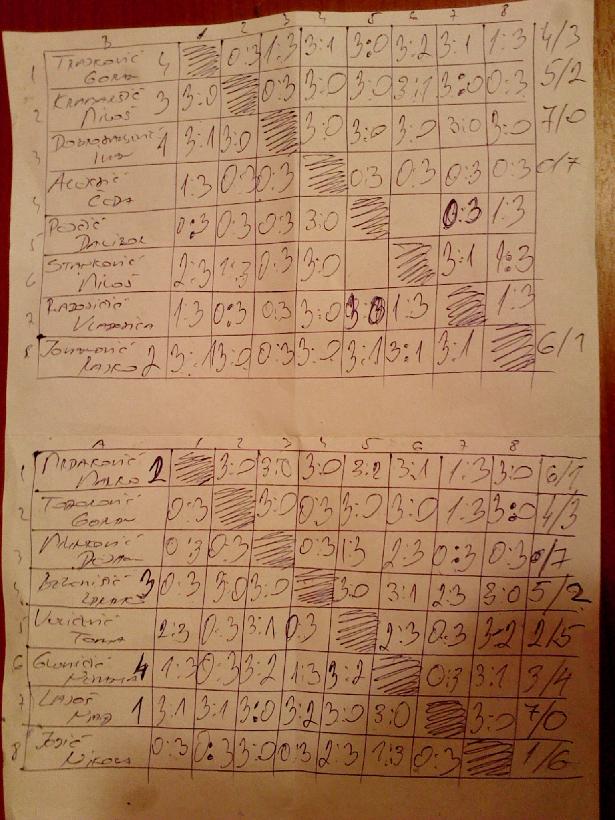 B 1 2 3 4 5 6 7 8
1 Trajković 4 0:3 1:3 3:1 3:0 3:2 3:1 1:3 4/3
Goran
2 3 3:0 0:3 3:0 3:0 3:1 3:0 0:3 5/2
Miloš
3 1 3:1 3:0 3:0 3:0 3:0 3:0 3:0 7/0
Ivan
4 1:3 0:3 0:3 0:3 0:3 0:3 0:3 0/7
Čeda
5 0:3 0:3 0:3 3:0 0:3 1:3
Dalibor
6 Stanković 2:3 1:3 0:3 3:0 3:1 1:3
Miloš
7 Radojičić 1:3 0:3 0:3 3:0 3:0 1:3 1:3
8 Jovanović 2 3:1 3:0 0:3 3:0 3:1 3:1 3:1 6/1
Rajko
A 1 2 3 4 5 6 7 8
1 Mrdaković 2 3:0 3:0 3:0 3:2 3:1 1:3 3:0 6/1
Marko
2 Todorović 0:3 3:0 0:3 3:0 3:0 1:3 3:0 4/3
Goran
3 0:3 0:3 0:3 1:3 2:3 0:3 0:3 0/7
Dejan
4 3 0:3 3:0 3:0 3:0 3:1 2:3 3:0 5/2
5 2:3 0:3 3:1 0:3 2:3 0:3 3:2 2/5
6 4 1:3 0:3 3:2 1:3 3:2 0:3 3:1 3/4
7 Lajoš 1 3:1 3:1 3:0 3:2 3:0 3:0 3:0 7/0
8 Josić 0:3 0:3 3:0 0:3 2:3 1:3 0:3 1/6
Nikola